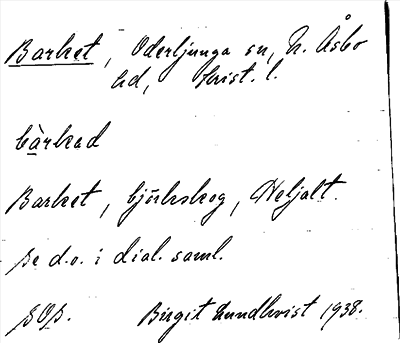 Barket, Oderljunga sn, N. Åsbo
hd, Krist. l.
bàrkad
Barket, björkskog, Heljalt.
Se d.o. i dial. saml.
SOS. Birgit Lundkvist 1938.